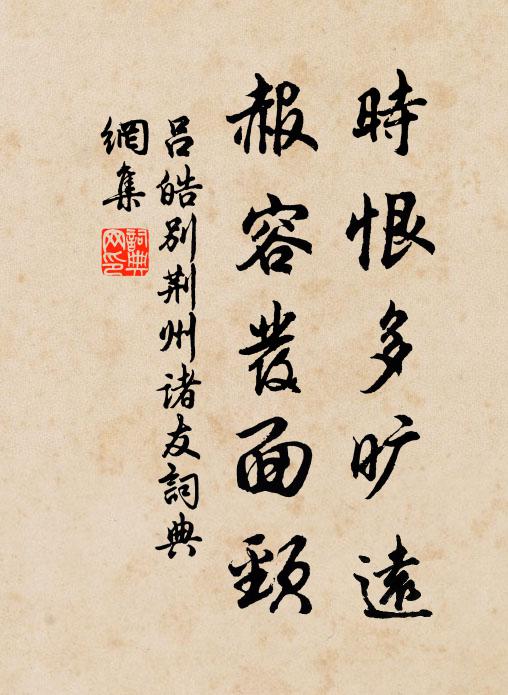 時恨多旷遠
赧容發面頸
吕皓别荆州诸友詞典
網集
詞典
网印